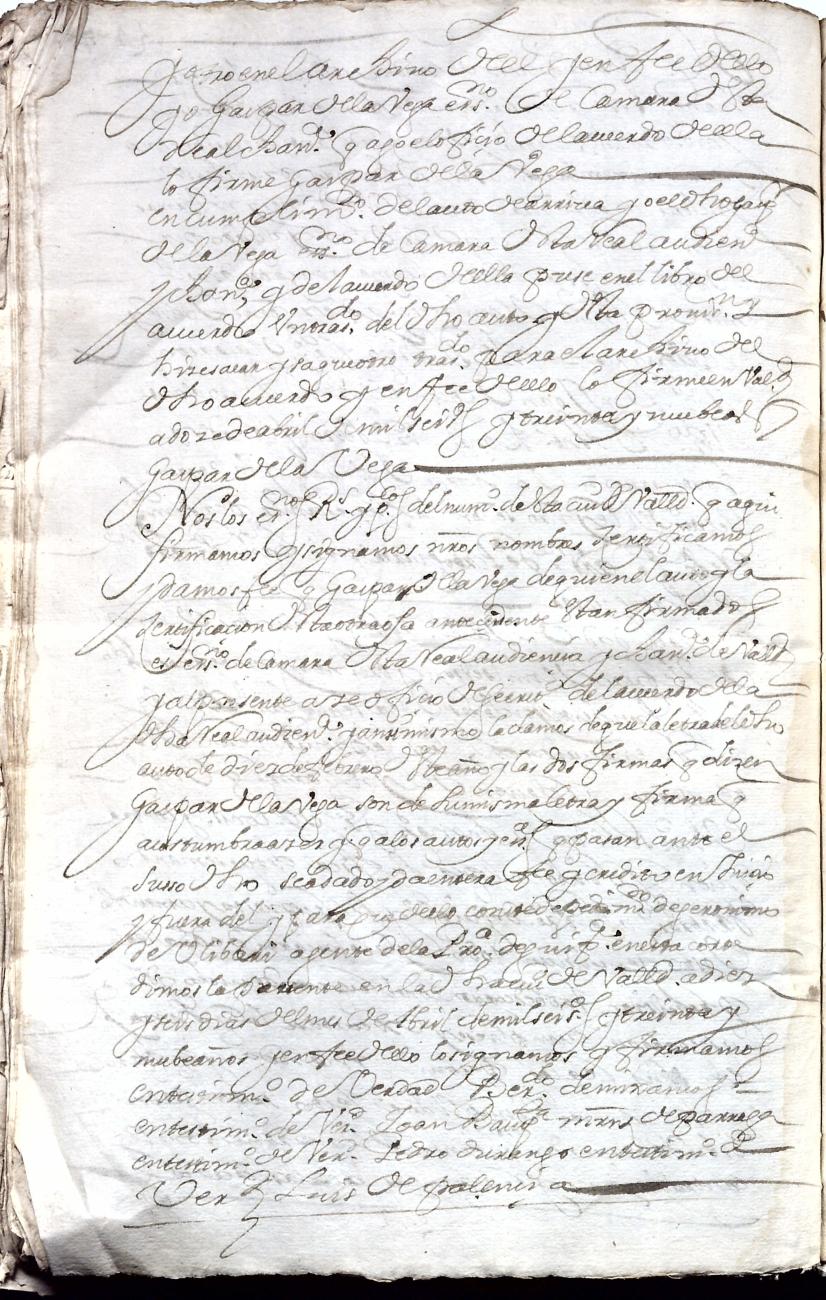 y otro en el archivo del y en fee dello
yo Gaspar de la Vega ess.no de Camara desta
Real chan.a q hago el oficio del acuerdo della
lo firme Gaspar de la Vega
en cumplim.o del auto de arriva yo el dho Gasp.r
de la Vega ess.no de Camara desta Real audien.a
y chan.a y del acuerdo della puse en el libro del
acuerdo un tras.do del dho auto y desta provi.n y
hize sacar y saque otro tras.do para el archivo del
dho acuerdo y en fee dello lo firme en Vall.d
a doze de abril de mil seis.s y treinta y nuebe a.s
Gaspar de la Vega
Nos los es.nos R.s y pu.cos del num.o desta ciu.d Valld. q aqui
firmamos y signamos nros nombres zertificamos
y damos fee q Gaspar de la Vega de quien el auto y la
zertificacion desta otra oja antecedente estan firmados
es ess.no de Camara desta Real audiencia y chan.a de Valld
y al presente aze oficio de secret.o del acuerdo de la
dha Real audien.a y ansimismo la damos de que la letra del dho
auto de diez de febrero deste año y las dos firmas q dizen
Gaspar de la Vega son de su misma letra y firma q
acostumbra azer y q a los autos y es.as q pasan ante el
susso dho se a dado y da entera fee y credito en Juicio
y fuera del y para q dello conste de pedim.to de geronimo
de Oliberi agente de la Pro.a de guip.a en esta corte
dimos la presente en la dha ciu.d de Valld. a diez
y seis dias del mes de Abril de mil seis.s y treinta y
nuebe años y en fee dello lo signamos y firmamos
en testim.o de Verdad Ber.do de miranos
en testim.o de Ver.d Joan Baup.ta mrns de parraga
en testim.o de Ver.d Pedro durango en testim.o de
Ver.d Luis de palencia